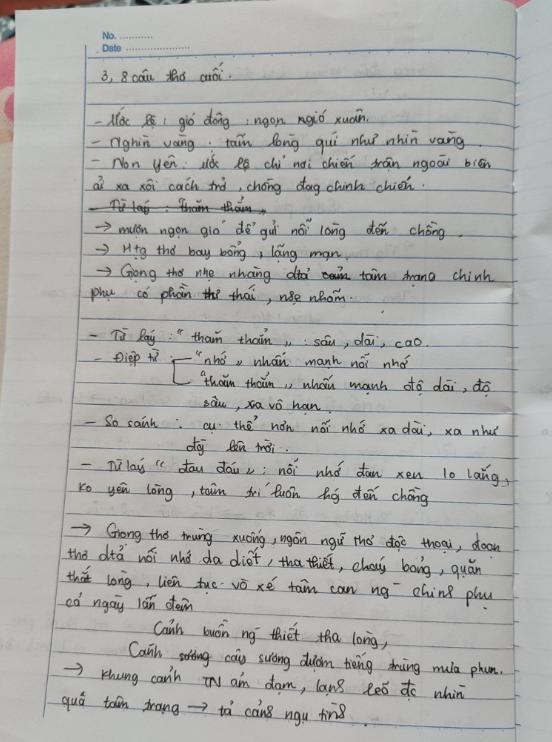 No. ............
Date .....................
3, 8 câu thơ cuối.
- Ước lệ: gió đông: ngọn ngió xuân.
- Nghìn vàng: tấm lòng quí như nhìn vàng
- Non yên: ước lệ chỉ nơi chiến trận ngoài biên
ải xa xôi cách trở, chồng đag chinh chiến.
- Từ láy: thăm thẳm,
→ mượn ngọn gió để gửi nỗi lòng đến chồng.
→ Htg thơ bay bổng, lãng mạn.
→ Giọng thơ nhẹ nhàng dtả tâm trạng chinh
phụ có phần thư thái, nhẹ nhõm.
- Từ láy: "thăm thẳm": sâu, dài, cao.
- Điệp từ "nhớ" nhấn mạnh nỗi nhớ
"thăm thẳm" nhấn mạnh độ dài, độ
sâu, xa vô hạn.
- So sánh: cụ thể hơn nỗi nhớ xa dài, xa như
đg lên trời.
- Từ láy "đau đáu": nỗi nhớ đan xen lo lắng,
ko yên lòng, tâm trí luôn hg đến chồng
→ Giọng thơ trùng xuống, ngôn ngữ thơ độc thoại, đoạn
thơ dtả nỗi nhớ da diết, tha thiết, cháy bỏng, quặn
thắt lòng, liên tục vò xé tâm can ng chinh phụ
cả ngày lẫn đêm
Cảnh buồn ng thiết tha lòng,
Cành sương cây sương đượm tiếng trùng mưa phun.
→ Khung cảnh TN ảm đạm, lạnh lẽo đc nhìn
quả tâm trạng → tả cảnh ngụ tình.